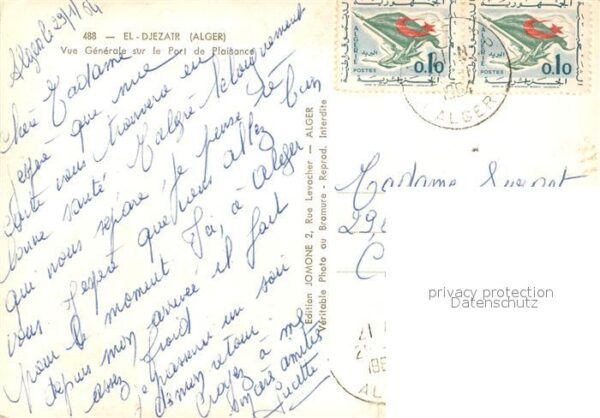 488 — EL-DJEZAIR (ALGER)
Vue Générale sur le Port de Plaisance
Alger le 29/1/64
Chère Madame
J'espère que ma
carte vous trouvera en
bonne santé. Malgré l'éloignement
qui nous sépare je pense très bien
vous. J'espère que vous allez
pour le moment Ici, à Alger
depuis mon arrivée il fait
assez froid
Je passerai un soir
à mon retour.
Croyez à mes
sincères amitiés
Edition JOMONE 2, Rue Levacher — ALGER
Véritable Photo au Bromure - Reprod. Interdite
ALGERIE
POSTES
البريد
0.10
ALGERIE
POSTES
البريد
0.10
ALGER
Madame
29
C
privacy protection
Datenschutz
21
196
AL